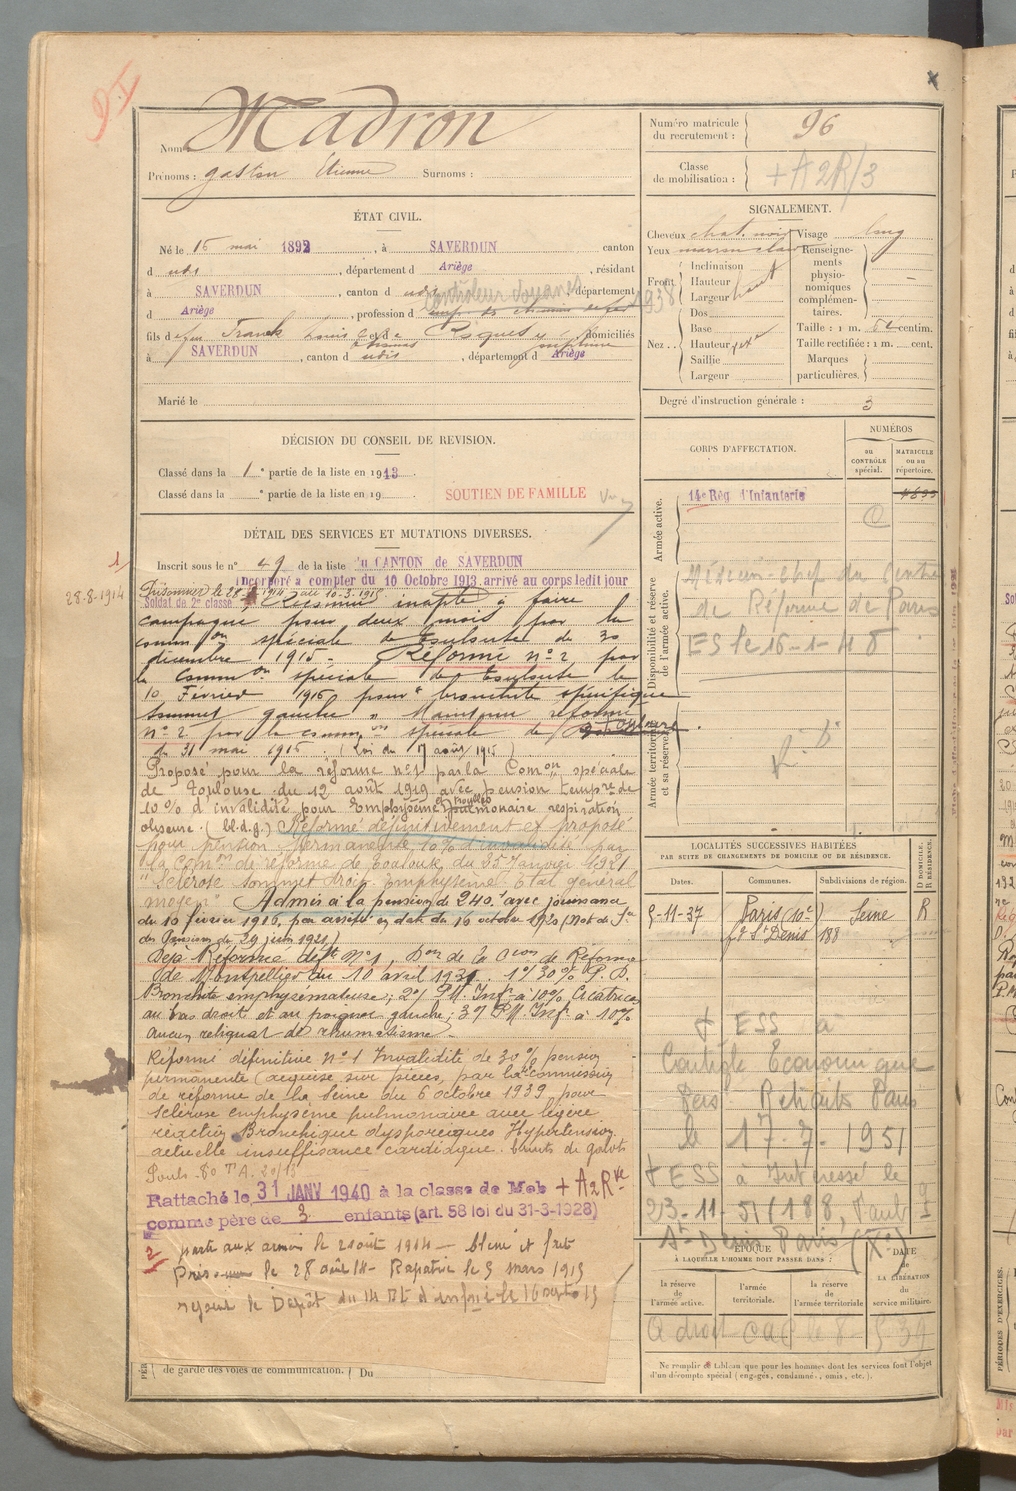 Nom : Madron
Prénoms : Gaston Étienne Surnoms :
Numéro matricule du recrutement : 96
Classe de mobilisation : + A 2R/3
ÉTAT CIVIL.
Né le 15 mai 1892, à SAVERDUN canton
d udit, département d Ariège, résidant
à SAVERDUN, canton d udit, département
d Ariège, profession d emp. de chemin de fer Contrôleur douanes 1938
fils de feu Franck Louis et de Roques Joséphine domiciliés
à SAVERDUN, canton d udit, département d Ariège
Marié le
SIGNALEMENT.
Cheveux chat. noir Visage long
Yeux marron clair Renseignements physionomiques complémentaires.
Front Inclinaison
Hauteur haut
Largeur
Nez Dos
Base
Hauteur
Saillie
Largeur
Taille : 1 m. 62 centim.
Taille rectifiée : 1 m. cent.
Marques particulières.
Degré d'instruction générale : 3
DÉCISION DU CONSEIL DE REVISION.
Classé dans la 1e partie de la liste en 1913
Classé dans la e partie de la liste en 19
SOUTIEN DE FAMILLE
DÉTAIL DES SERVICES ET MUTATIONS DIVERSES.
Inscrit sous le n° 49 de la liste du CANTON de SAVERDUN
Incorporé à compter du 10 Octobre 1913, arrivé au corps ledit jour
28.8.1914
Soldat de 2e classe. Reconnu inapte à faire
campagne pour deux mois par la
common spéciale de Toulouse du 30
décembre 1915. Réformé n° 2 par
la Common spéciale de Toulouse le
10 Février 1916 pour " bronchite spécifique
sommet gauche " Maintenu réformé
n° 2 par la common spéciale de
du 31 mai 1916. (Loi du 17 août 1915)
Proposé pour la réforme n° 1 par la Comon spéciale
de Toulouse du 12 août 1919 avec pension tempre de
10 % d'invalidité pour Emphysème pulmonaire respiration
obscure. (bl.d.g.) Réformé définitivement et proposé
pour pension permanente 10 % d'invalidité par
la Comon de réforme de Toulouse du 25 Janvier 1921
" Sclérose sommet droit. Emphysème. Etat général
moyen " Admis à la pension de 240. avec jouissance
du 10 février 1916, par arrêté en date du 16 octobre 1920 (Not. du Sre
des Pensions du 29 juin 1921)
Déjà Réformé déft N° 1, Don de la Con de Réforme
de Montpellier du 10 avril 1931. 1°/ 30 % P.D.
Bronchite emphysémateuse; 2°/ P.M. Infr à 10 % Cicatrice
au bras droit et au poignet gauche; 3°/ P.M. Infr à 10 %
aucun reliquat de rhumatisme.
Réformé définitive N° 1 Invalidité de 30 % pension
permanente (acquise sur pièces, par la commission
de réforme de la Seine du 6 octobre 1939 pour
sclérose emphysème pulmonaire avec légère
réaction Bronchique dyspnéiques Hypertension
actuelle insuffisance cardiaque. bruits de galops
Rattaché le 31 JANV 1940 à la classe de Mob + A2Rve
comme père de 3 enfants (art. 58 loi du 31-3-1928)
2 parti aux armées le 2 août 1914 — blessé et fait
Pris. le 28 août 14 — Rapatrié le 5 mars 1915
rejoint le Dépôt du 14 Rt d'infrie le 16 septe 15
de garde des voies de communication. ( Du
CORPS D'AFFECTATION.
NUMÉROS
au CONTRÔLE spécial.
MATRICULE ou au répertoire.
Armée active.
14e Rég. d'Infanterie
Disponibilité et réserve de l'armée active.
Médecin-Chef du Centre
de Réforme de Paris
ES le 16-1-48
Armée territoriale et sa réserve.
LOCALITÉS SUCCESSIVES HABITÉES
PAR SUITE DE CHANGEMENTS DE DOMICILE OU DE RÉSIDENCE.
Dates. Communes. Subdivisions de région. D DOMICILE. R RÉSIDENCE.
5-11-37 Paris (10e) Seine R
fg St Denis 188
+ ESS à
Contrôle Economique
Pers Retraités Paris
le 17-7-1951
+ ESS à Intéressé le
23-11-51 (188, Faub
St Denis Paris (Xe)
ÉPOQUE
À LAQUELLE L'HOMME DOIT PASSER DANS :
la réserve de l'armée active.
l'armée territoriale.
la réserve de l'armée territoriale
DATE de LA LIBÉRATION du service militaire.
A droit CAC le 8-5-39
Ne remplir ce tableau que pour les hommes dont les services font l'objet
d'un décompte spécial (engagés, condamnés, omis, etc.).
PÉRIODES D'EXERCICES.